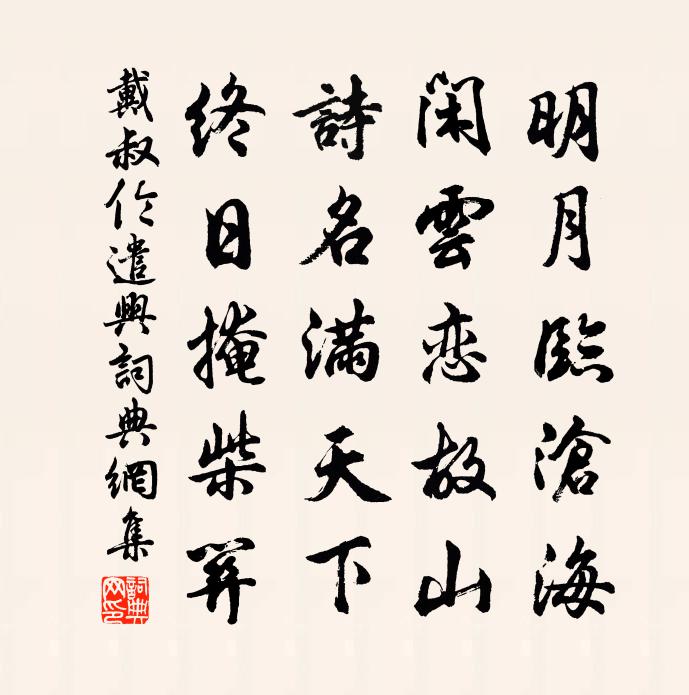 明月臨滄海
閑雲恋故山
詩名満天下
終日掩柴関
戴叔伦遣興詞典網集
詞典網印